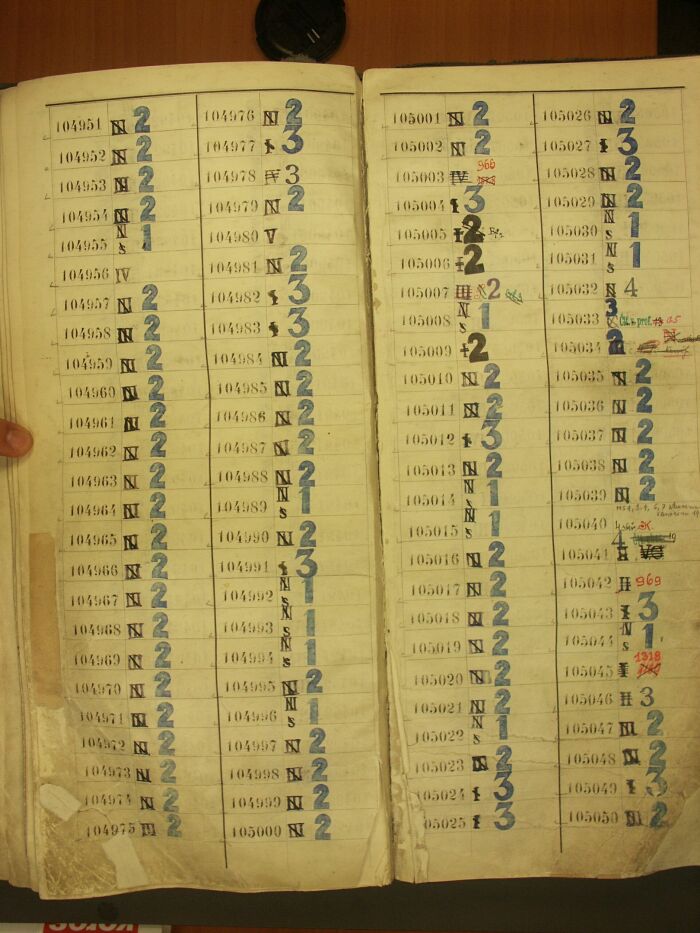 104951 N 2
104952 N 2
104953 N 2
104954 N 2
104955 N s 1
104956 IV
104957 N 2
104958 N 2
104959 N 2
104960 N 2
104961 N 2
104962 N 2
104963 N 2
104964 N 2
104965 N 2
104966 N 2
104967 N 2
104968 N 2
104969 N 2
104970 N 2
104971 N 2
104972 N 2
104973 N 2
104974 N 2
104975 N 2
104976 N 2
104977 I 3
104978 IV 3
104979 N 2
104980 V
104981 N 2
104982 I 3
104983 I 3
104984 N 2
104985 N 2
104986 N 2
104987 N 2
104988 N 2
104989 N s 1
104990 N 2
104991 I 3
104992 N s 1
104993 N s 1
104994 N s 1
104995 N 2
104996 N s 1
104997 N 2
104998 N 2
104999 N 2
105000 N 2
105001 N 2
105002 N 2
105003 IV 966
105004 I 3
105005 I 2
105006 I 2
105007 III 2
105008 N s 1
105009 I 2
105010 N 2
105011 N 2
105012 I 3
105013 N 2
105014 N s 1
105015 N s 1
105016 N 2
105017 N 2
105018 N 2
105019 N 2
105020 N 2
105021 N 2
105022 N s 1
105023 N 2
105024 I 3
105025 I 3
105026 N 2
105027 I 3
105028 N 2
105029 N 2
105030 N s 1
105031 N s 1
105032 N 4
105033 3
105034 2
105035 N 2
105036 N 2
105037 N 2
105038 N 2
105039 N 2
105040
105041 II 4
105042 II 969
105043 I 3
105044 N s 1
105045 I 1318
105046 II 3
105047 N 2
105048 N 2
105049 I 3
105050 N 2